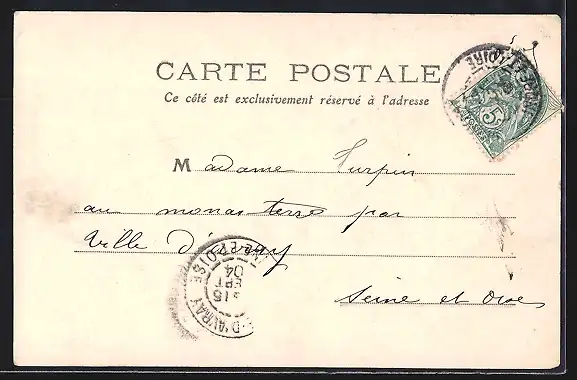 CARTE POSTALE
Ce côté est exclusivement réservé à l'adresse
Madame Turpin
au monastère par
Ville d'avray
Seine et Oise
D'AVRAY
15
SEPT
04
ET-OISE
5
LOIRE